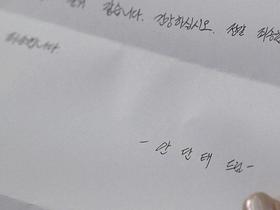 같습니다. 건강하십시오. 정말 죄송
죄송합니다
- 안단태 드림 -